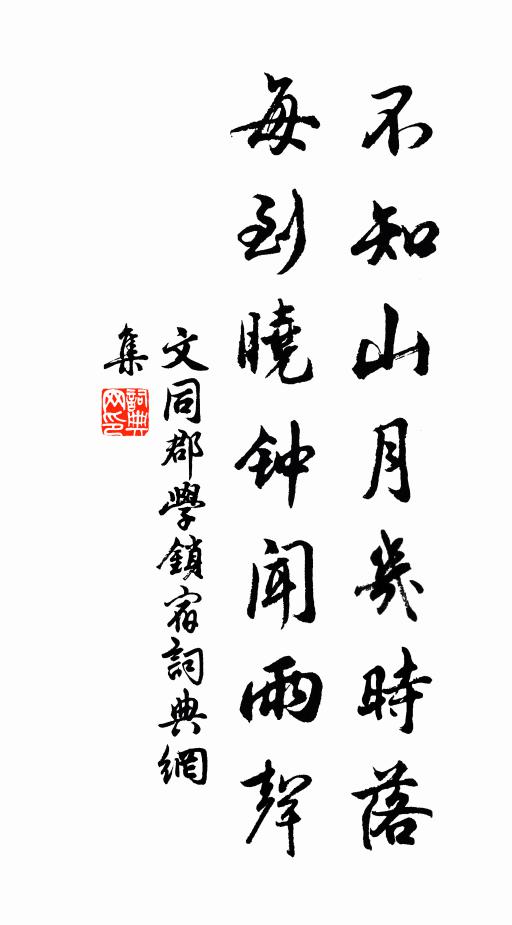 不知山月幾時落
每到曉钟聞雨聲
文同郡學鎖宿詞典網
集
詞典
网印